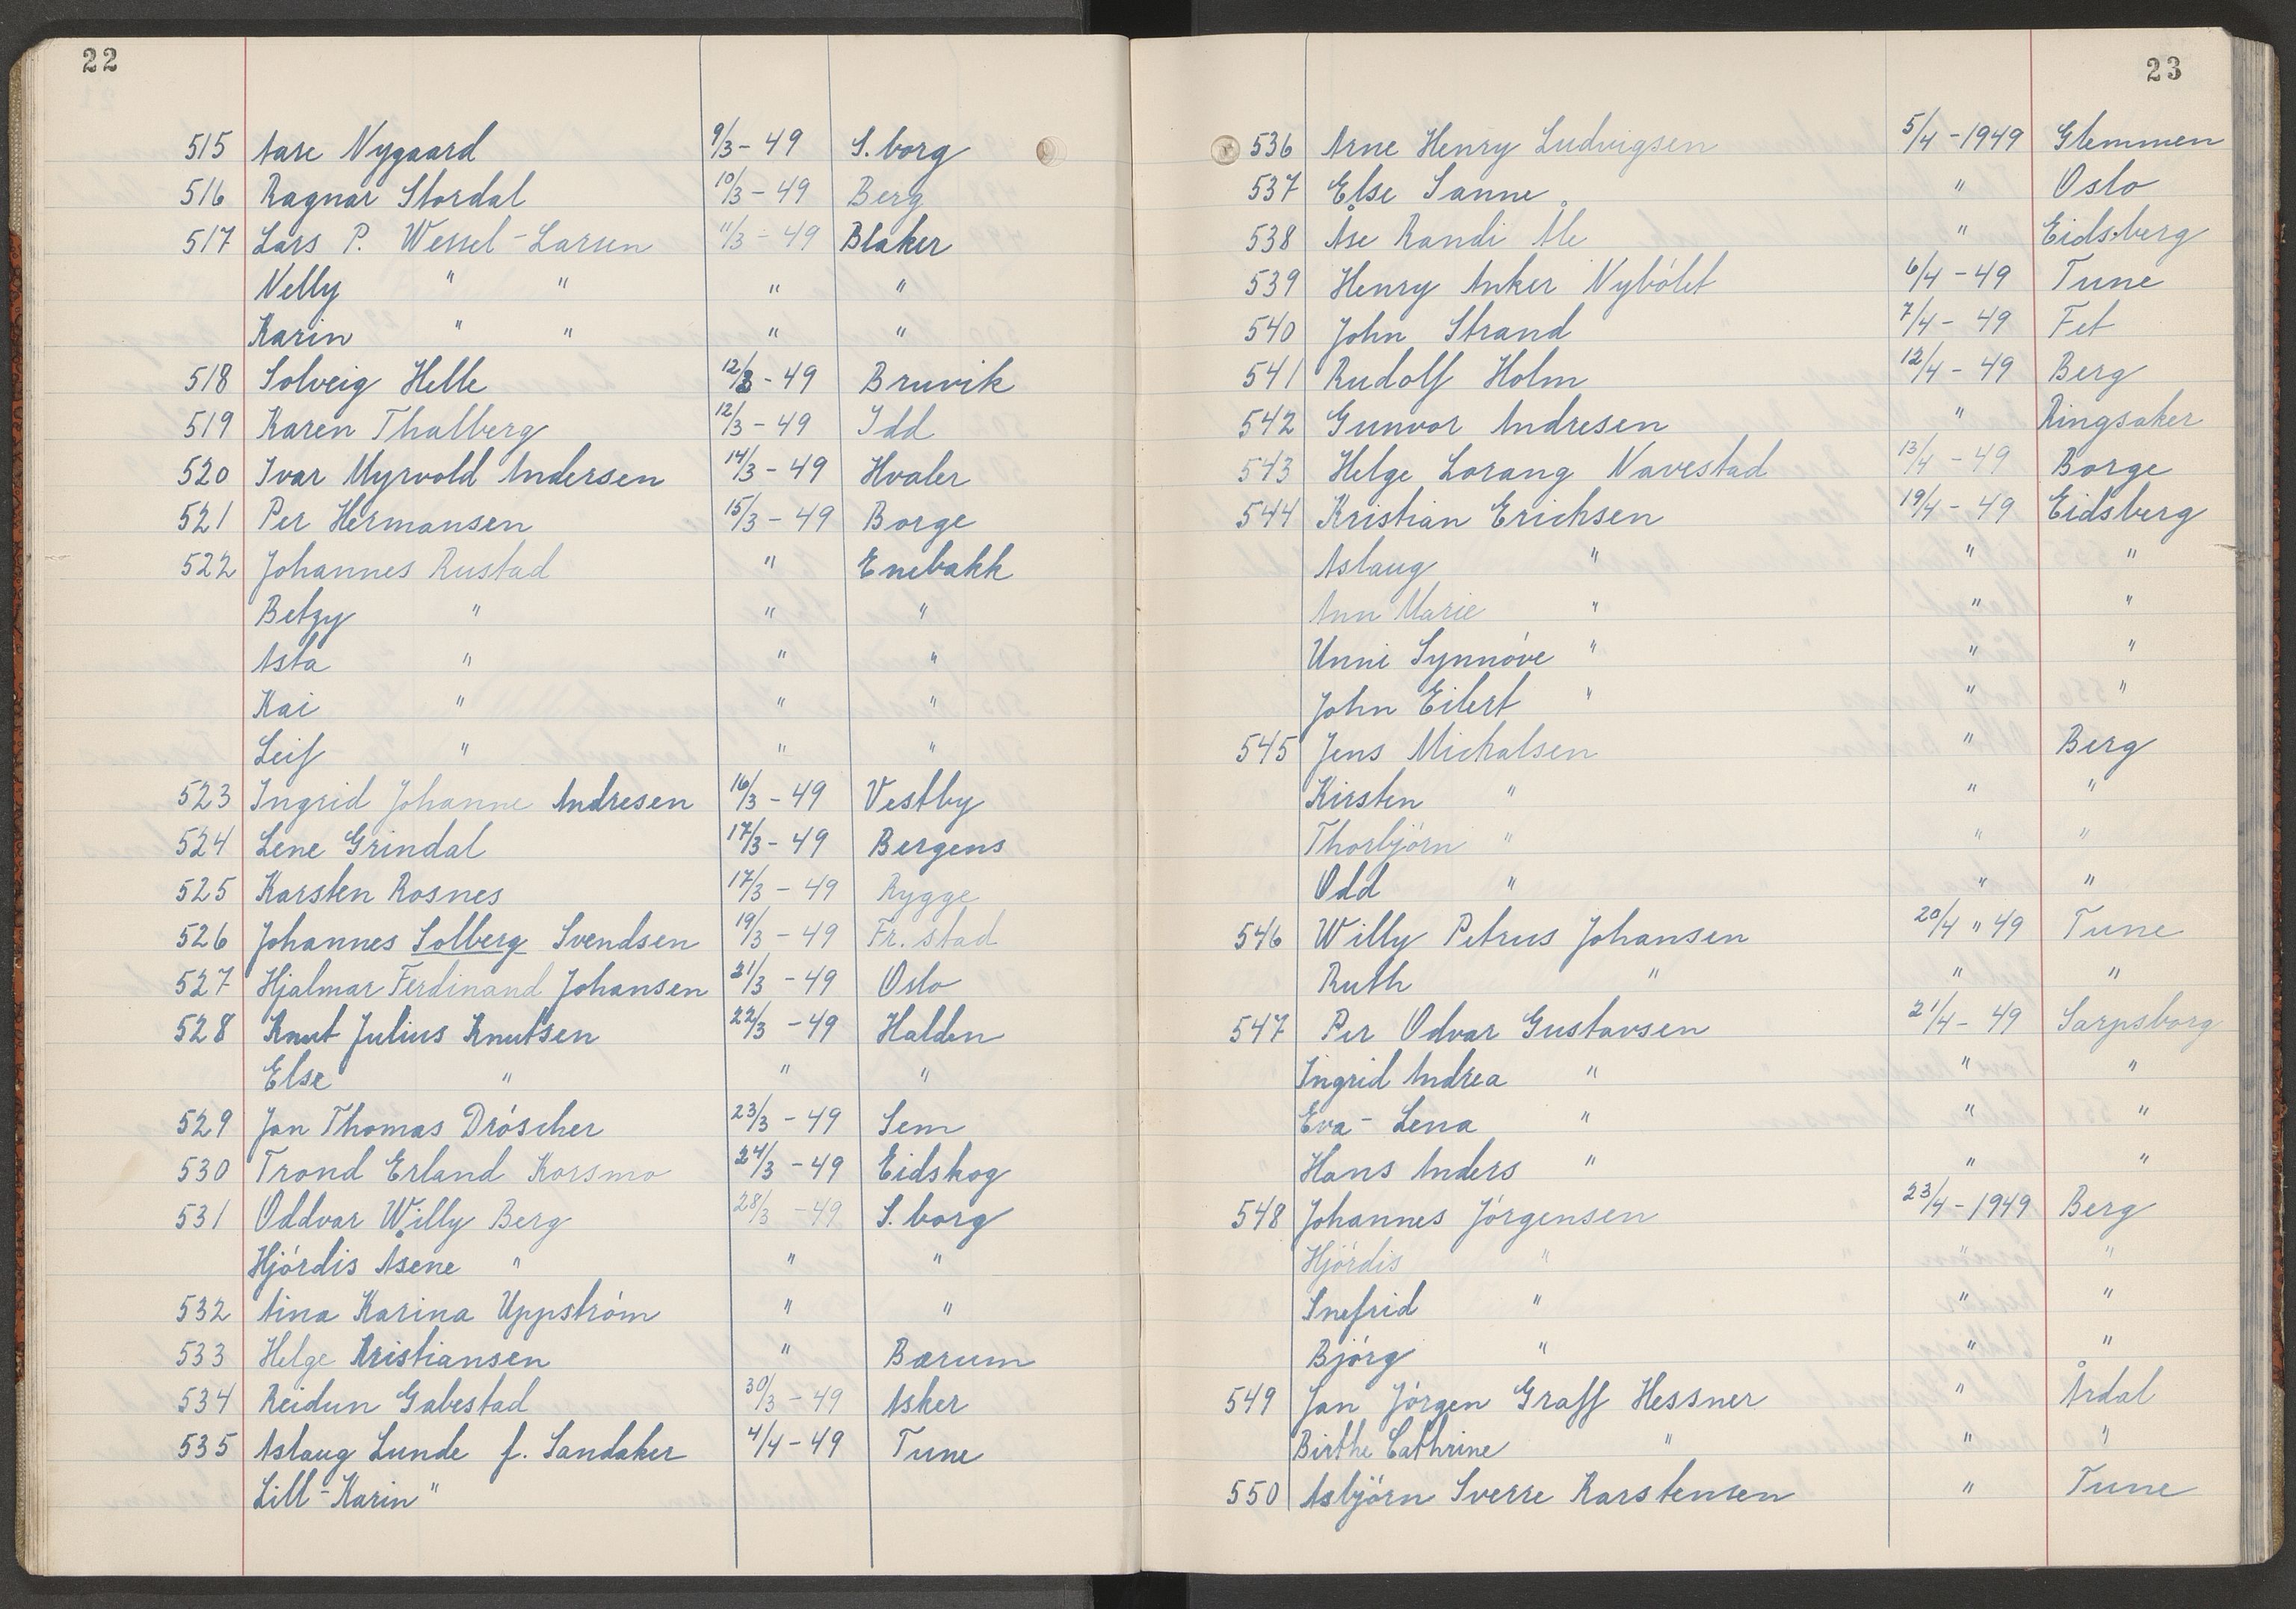 22
515 Aase Nygaard 9/3 - 49 S.borg
516 Ragnar Stordal 10/3 - 49 Berg
517 Lars P. Wessel-Larsen 11/3 - 49 Blaker
Nelly " " " "
Karin " " " "
518 Solveig Helle 12/3 - 49 Bruvik
519 Karen Thalberg 12/3 - 49 Idd
520 Ivar Myrvold Andersen 14/3 - 49 Hvaler
521 Per Hermansen 15/3 - 49 Borge
522 Johannes Rustad " Enebakk
Betzy " " "
Asta " " "
Kai " " "
Leif " " "
523 Ingrid Johanne Andresen 16/3 - 49 Vestby
524 Lene Grindal 17/3 - 49 Bergens
525 Karsten Rosnes 17/3 - 49 Rygge
526 Johannes Solberg Svendsen 19/3 - 49 Fr.stad
527 Hjalmar Ferdinand Johansen 21/3 - 49 Oslo
528 Knut Julius Knutsen 22/3 - 49 Halden
Else " " "
529 Jan Thomas Dróscher 23/3 - 49 Sem
530 Trond Erland Korsmo 24/3 - 49 Eidskog
531 Oddvar Willy Berg 28/3 - 49 S.borg
Hjórdis Åsene " " "
532 Aina Karina Uppstróm " "
533 Helge Kristiansen " Bærum
534 Reidun Gabestad 30/3 - 49 Asker
535 Aslaug Lunde f. Sandaker 4/4 - 49 Tune
Lill-Karin "
23
536 Arne Henry Ludvigsen 5/4 - 1949 Glemmen
537 Else Sanne " Oslo
538 Åse Randi Åle " Eidsberg
539 Henry Anker Nybólet 6/4 - 49 Tune
540 John Strand 7/4 - 49 Fet
541 Rudolf Holm 12/4 - 49 Berg
542 Gunvor Andresen " Ringsaker
543 Helge Lorang Navestad 13/4 - 49 Borge
544 Kristian Erichsen 19/4 - 49 Eidsberg
Aslaug " " "
Ann Marie " " "
Unni Synnóve " " "
John Eilert " " "
545 Jens Michalsen " Berg
Kirsten " " "
Thorbjórn " " "
Odd " " "
546 Willy Petrus Johansen 20/4 " 49 Tune
Ruth " " "
547 Per Odvar Gustavsen 21/4 - 49 Sarpsborg
Ingrid Andrea " " "
Eva-Lena " " "
Hans Anders " " "
548 Johannes Jórgensen 23/4 - 1949 Berg
Hjórdis " " "
Snefrid " " "
Bjórg " " "
549 Jan Jórgen Graff Hessner " Årdal
Birthe Cathrine " " "
550 Asbjórn Sverre Karstensen " Tune